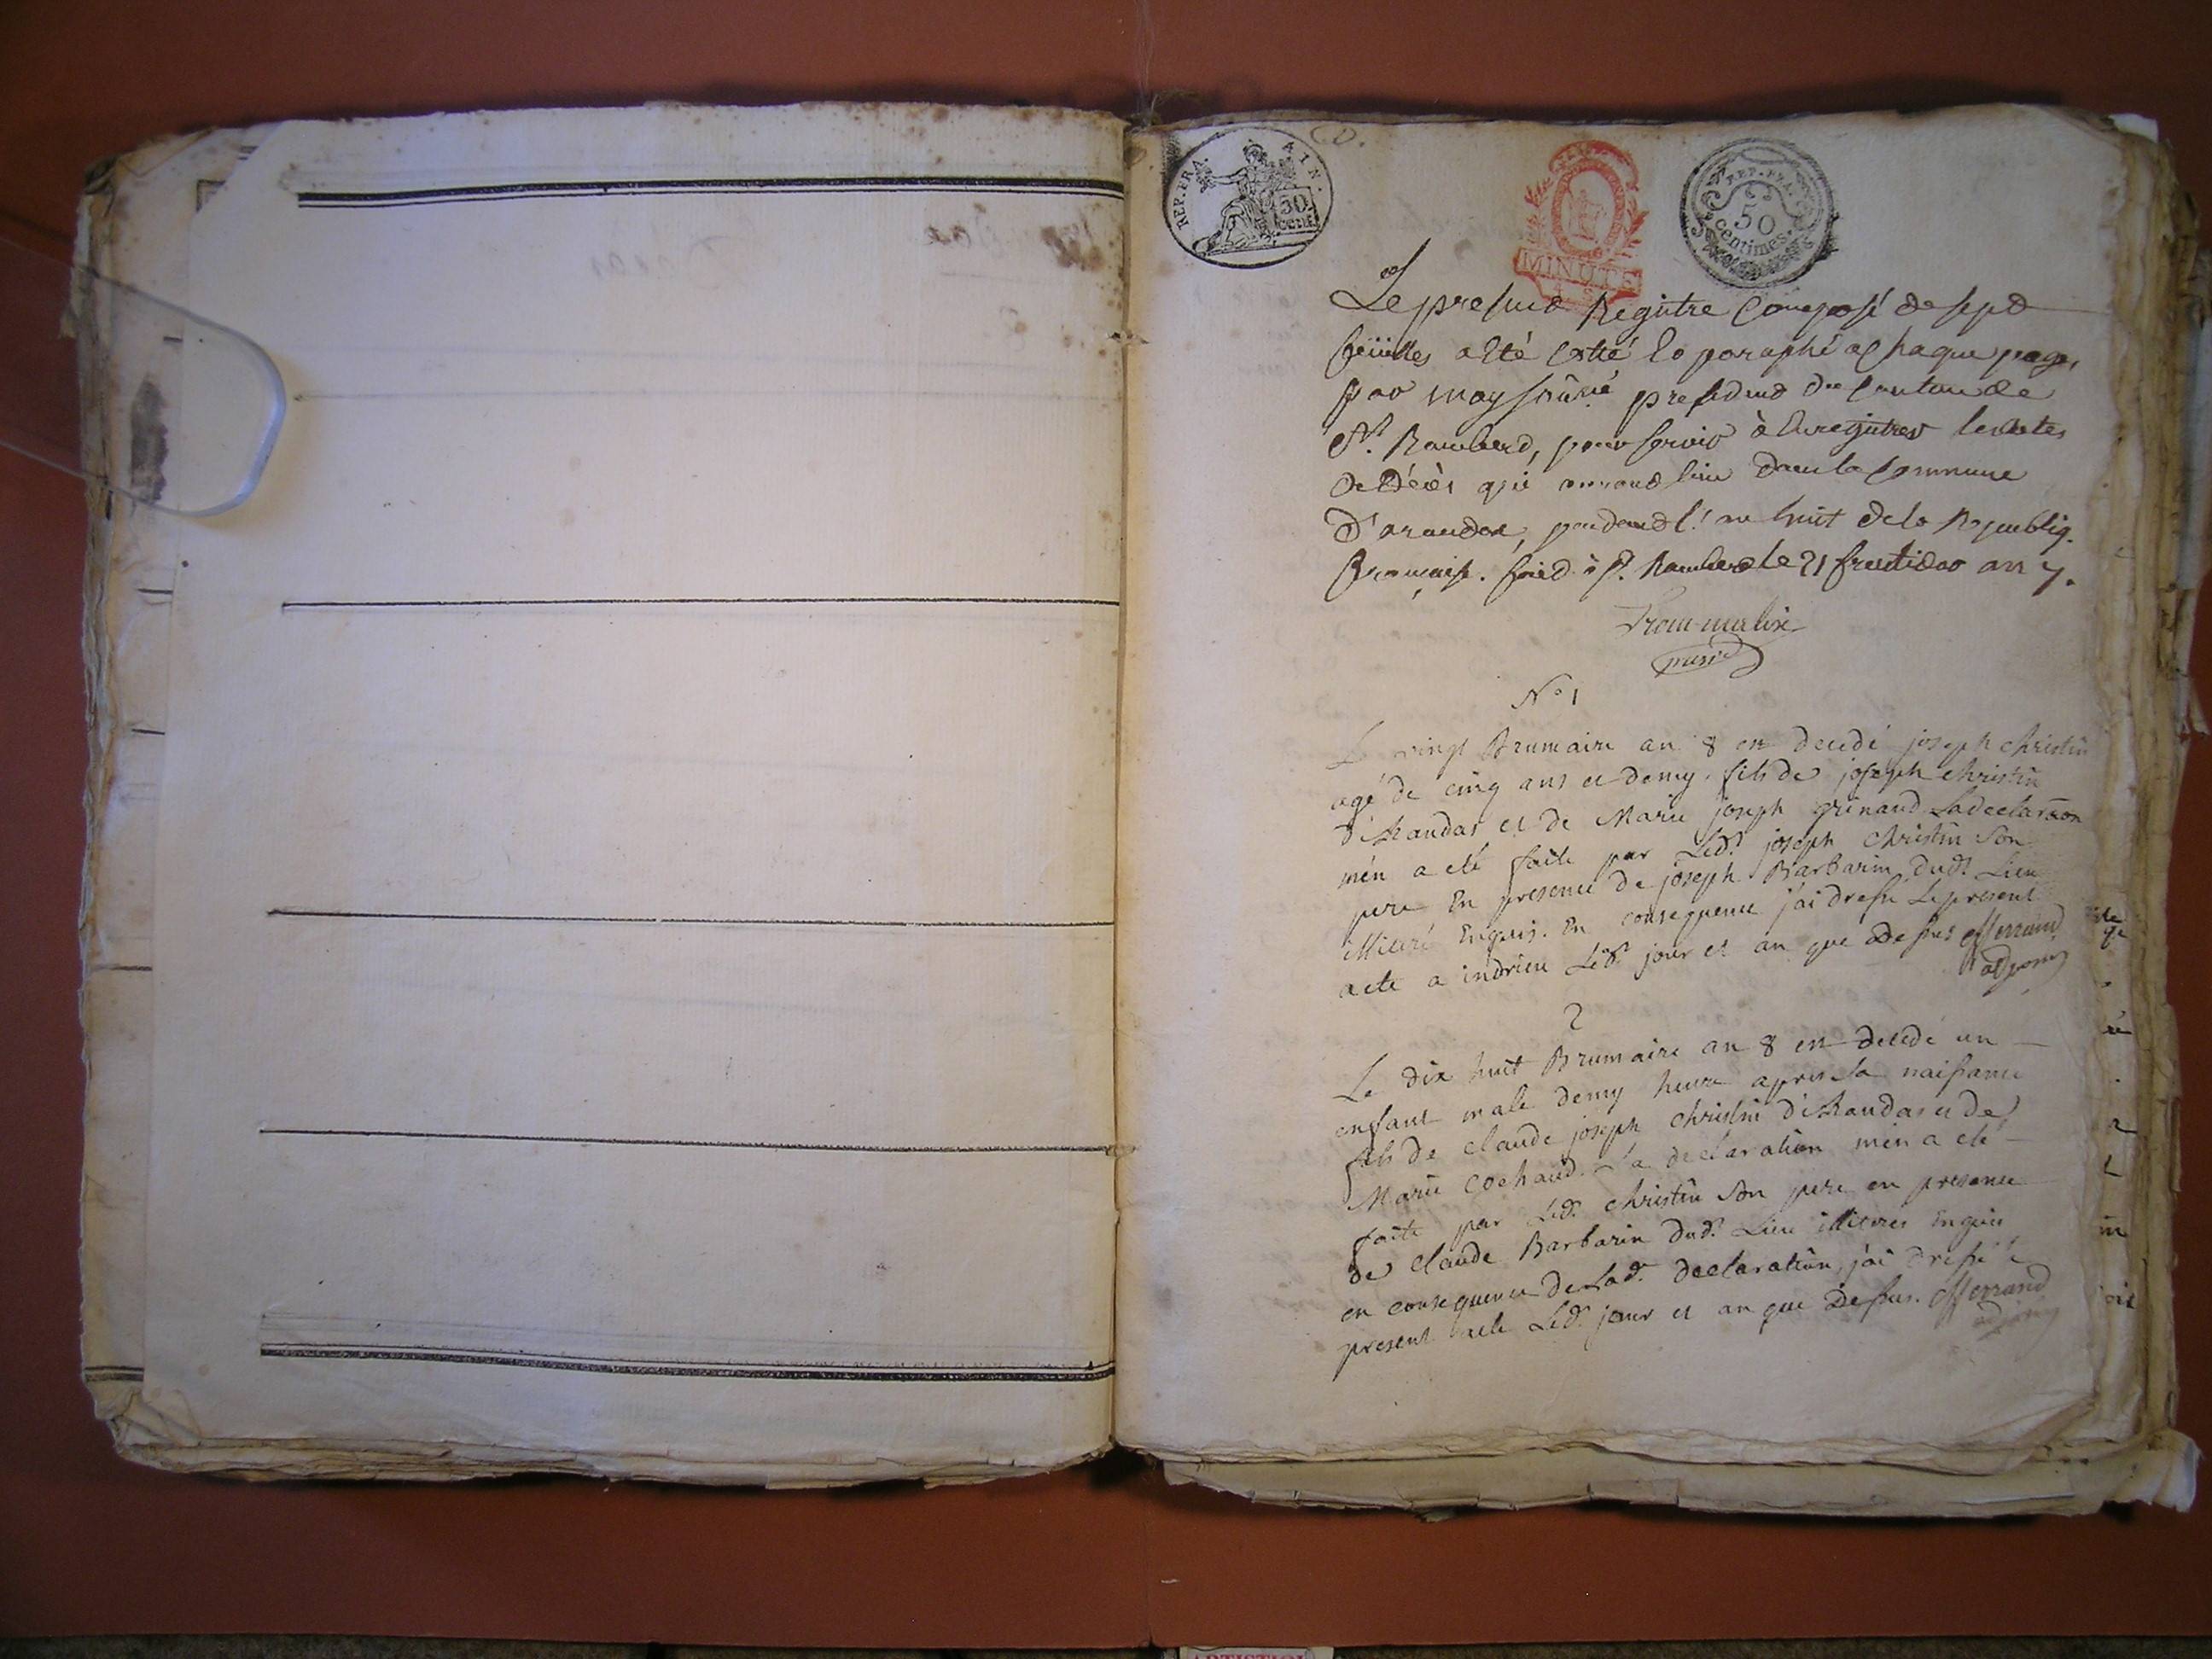 REP. FRA. AIN.
50 CENT.
MINUTE
REP. FRA.
50
centimes.
Le present Registre Composé de sept
feüilles a Eté Cotté Et paraphé a chaque page,
par moy soussigné president du Canton de
St. Rambert, pour servir à Enregistrer les actes
de Décès qui auront lieu dans la Commune
D'arandas, pendant l'an huit de la Republiq.
française. faid à St. Rambert le 21 fructidor an 7.
presid
N° 1
Le vingt Brumaire an 8 est decedé joseph christin
agé de cinq ans et demy. fils de joseph christin
d'Arandas et de Marie joseph grinand La declaraon
m'en a eté faite par Ledt. joseph christin son
pere En presence de joseph Barbarin dudt. Lieu
illitéré Enquis. En consequence j'ai dressé Le present
acte a indrieu Ledt. jour et an que dessus
adjoint
2
Le dix huit Brumaire an 8 est decedé un
enfant male demy heure apres sa naissance
fils de claude joseph christin d'Arandas et de
Marie Cochaud. La declaration m'en a eté
faite par Ledt. christin son pere en presence
de claude Barbarin dudt. Lieu illiterés Enquis
en consequence de Lad. declaration, j'ai dressé le
present acte Ledt. jour et an que dessus.